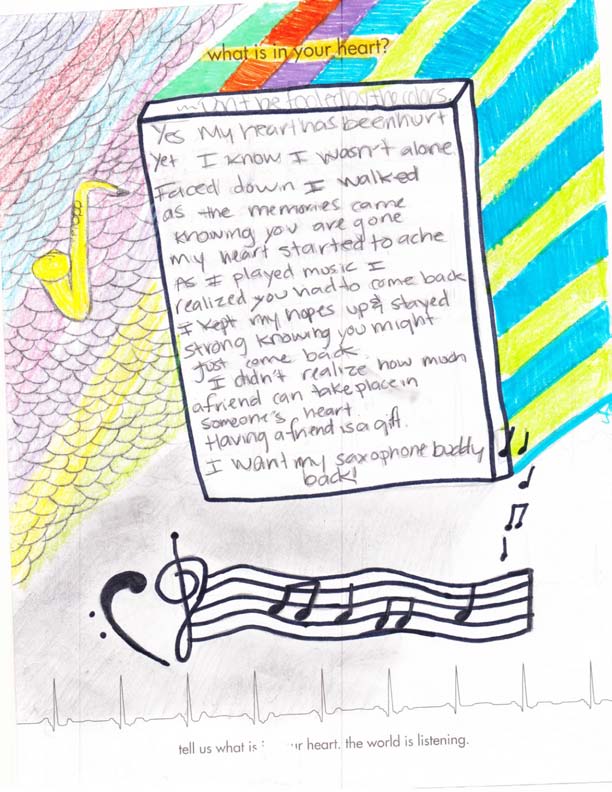 what is in your heart?
Don't be fooled by the colors
Yes My heart has been hurt
yet I know I wasn't alone
Faced down I walked
as the memories came
knowing you are gone
my heart started to ache
As I played music I
realized you had to come back
I kept my hopes up & stayed
strong knowing you might
just come back.
I didn't realize how much
a friend can take place in
someone's heart.
Having a friend is a gift.
I want my saxophone buddy
back!
tell us what is ur heart. the world is listening.